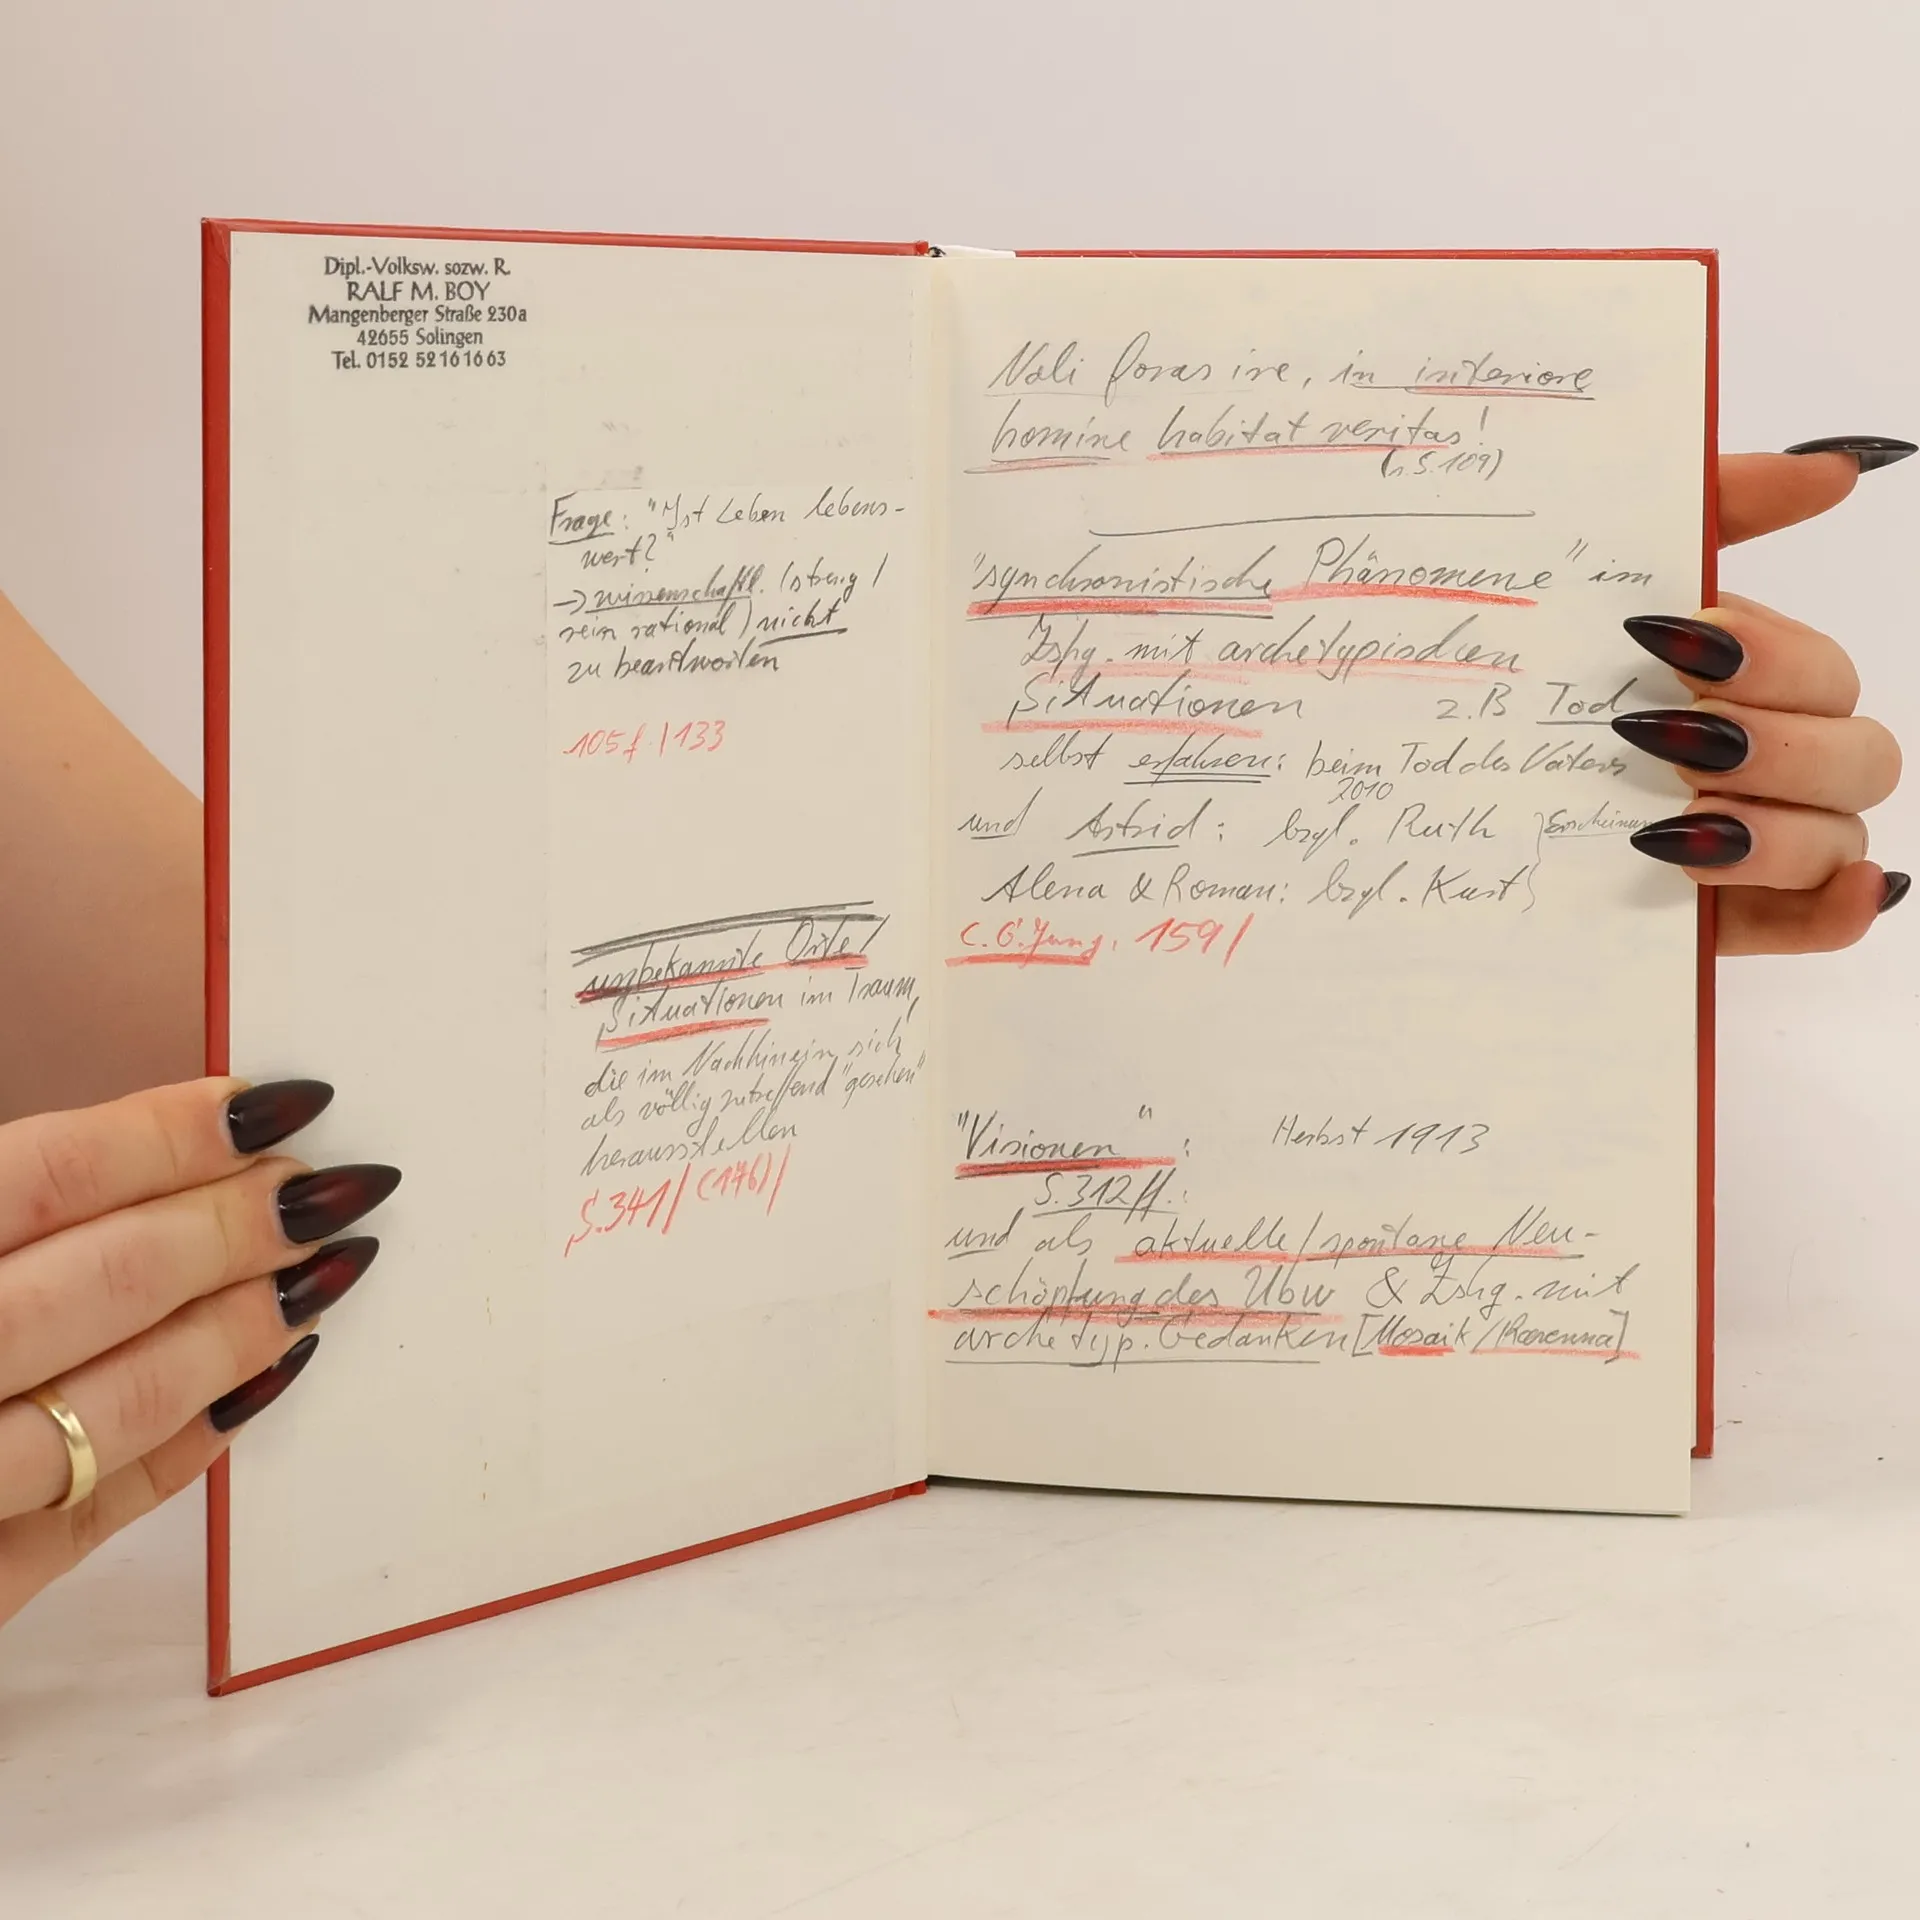 Dipl.-Volksw. sozw. R.
RALF M. BOY
Mangenberger Straße 230a
42655 Solingen
Tel. 0152 52161663
Frage: "Ist Leben lebens-
wert?"
→ wissenschaftl. (streng /
rein rational) nicht
zu beantworten
105f. / 133
unbekannte Orte /
Situationen im Traum,
die im Nachhinein sich
als völlig zutreffend "gesehen"
herausstellen
S. 341 / (176) /
Noli foras ire, in interiore
homine habitat veritas!
(s. S. 109)
"synchronistische Phänomene" im
Zshg. mit archetypischen
Situationen z.B Tod
selbst erfahren: beim Tod des Vaters
2010
und Astrid: bzgl. Ruth
Alena & Roman: bzgl. Kurt
C. G. Jung, 159 /
"Visionen": Herbst 1913
S. 312 ff.:
und als aktuelle / spontane Neu-
schöpfung des Ubw & Zshg. mit
archetyp. Gedanken [Mosaik / Ravenna]